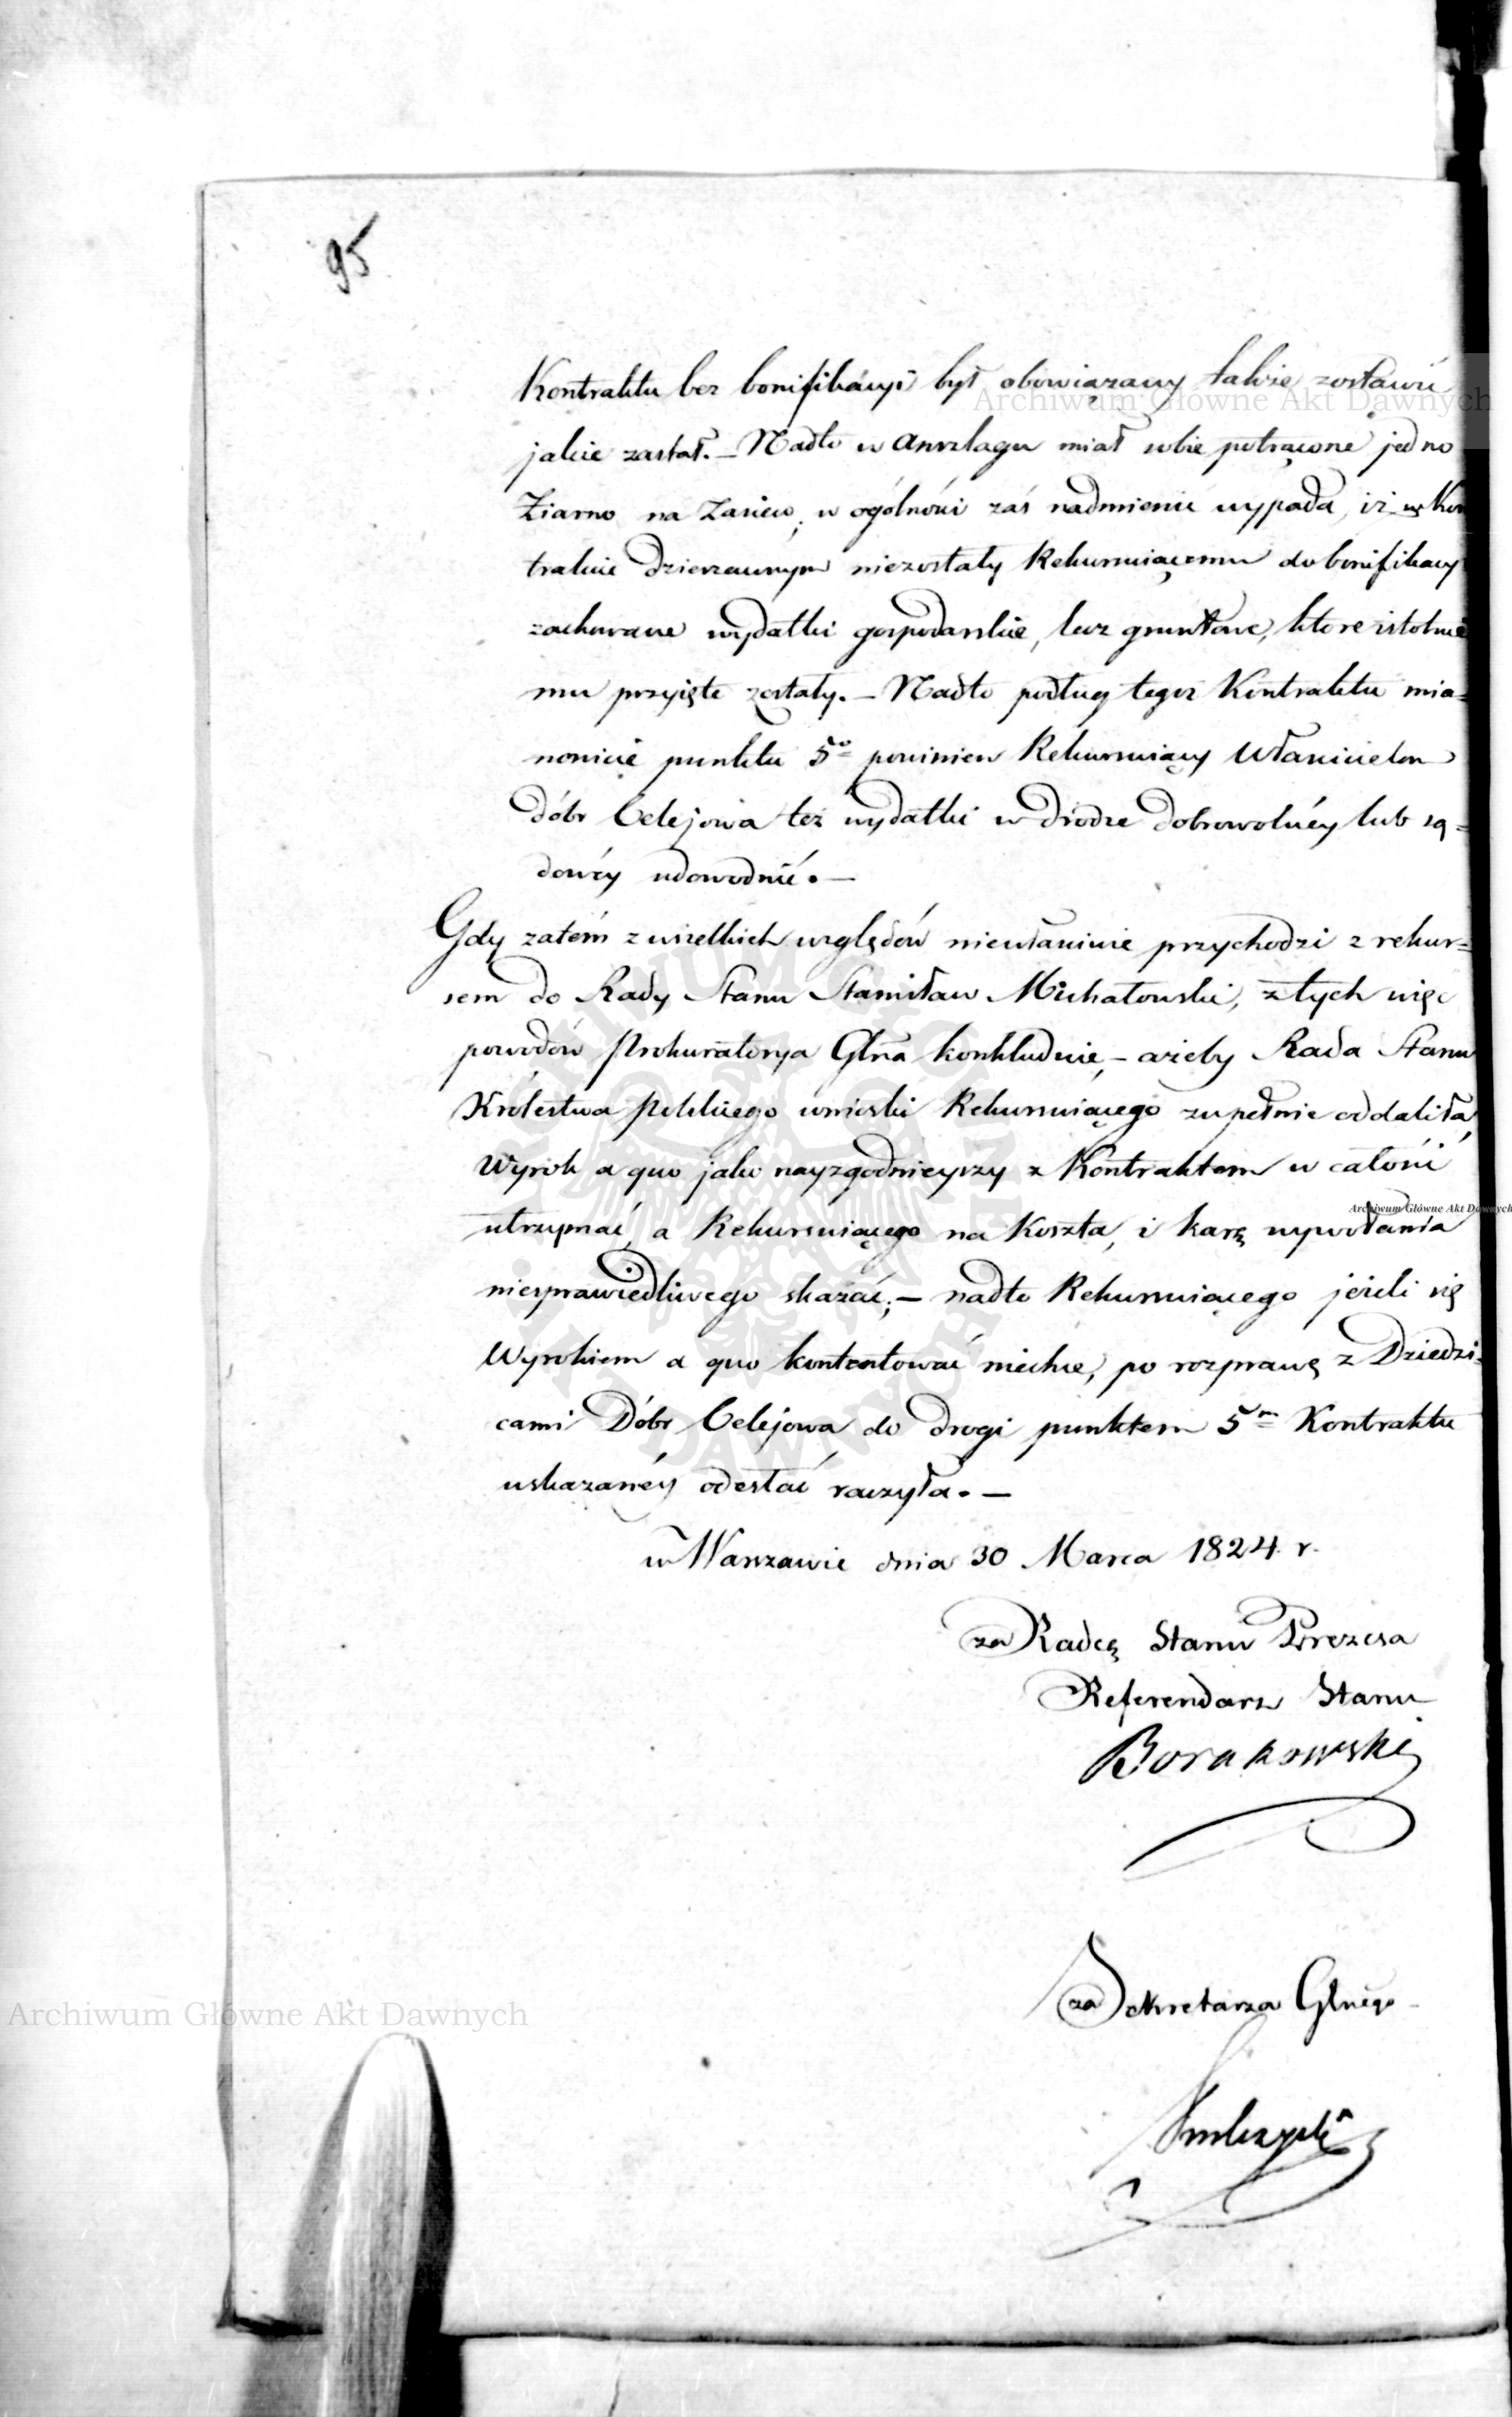 95
Kontraktu bez bonifikacyi był obowiązany takie zostawić
jakie zastał. – Nadto w Anszlagu miał sobie potrącone jedno
Ziarno na Zasiew, w ogólności zaś nadmienić wypada, iż w Kon
trakcie dzierzawnym niezostały Rekursuiącemu do bonifikacy
zachowane wydatki gospodarskie, lecz gruntowe, ktore istotnie
mu przyięte zostały. – Nadto podług tegoż Kontraktu mia=
nowicie punktu 5º powinien Rekursuiący Właścicielom
dóbr Celejowa też wydatki w drodze dobrowolnéy lub są=
dowéy udowodnić. –
Gdy zatém z wszelkich względów niewłaściwie przychodzi z rekur=
sem do Rady Stanu Stanisław Michałowski, z tych więc
powodów Prokuratorya Glna konkluduie, – ażeby Rada Stanu
Królestwa Polskiego wnioski Rekursuiącego zupełnie oddaliła,
Wyrok a quo jako nayzgodnieyszy z Kontraktem w całości
utrzymać, a Rekursuiącego na Koszta, i karę wywołania
niesprawiedliwego skazać; – nadto Rekursuiącego jeżeli się
Wyrokiem a quo kontentować niechce, po rozprawę z Dziedzi=
cami Dóbr Celejowa do drogi punktem 5m Kontraktu
wskazanéy odesłać raczyła. –
w Warszawie dnia 30 Marca 1824 r.
za Radcę Stanu Prezesa
Referendarz Stanu
Borakowski
za Sekretarza Glnego
Archiwum Główne Akt Dawnych
Archiwum Główne Akt Dawnych
Archiwum Główne Akt Dawnych